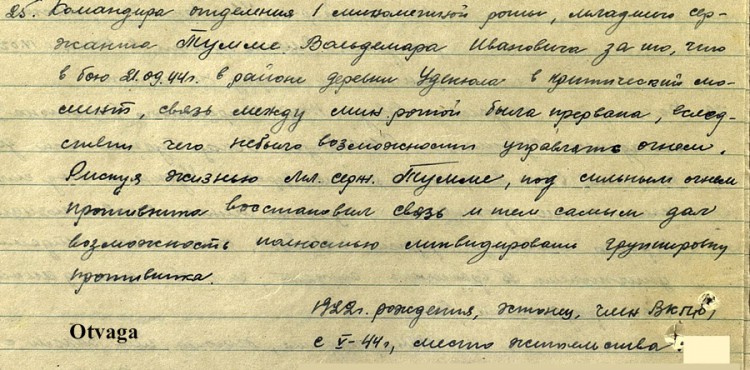 25. Командира отделения 1 минометной роты, младшего сер-
жанта Тумме Вольдемара Ивановича за то, что
в бою 21.09.44г. в районе деревни Удекюла в критический мо-
мент, связь между мин.ротой была прервана, вслед-
ствии чего небыло возможности управлять огнем.
Рискуя жизнью мл. серж. Тумме, под сильным огнем
противника восстановил связь и тем самым дал
возможность полностью ликвидировать группировку
противника.
1922г. рождения, эстонец, член ВКП/б/,
с V-44г, место жительства:
Otvaga